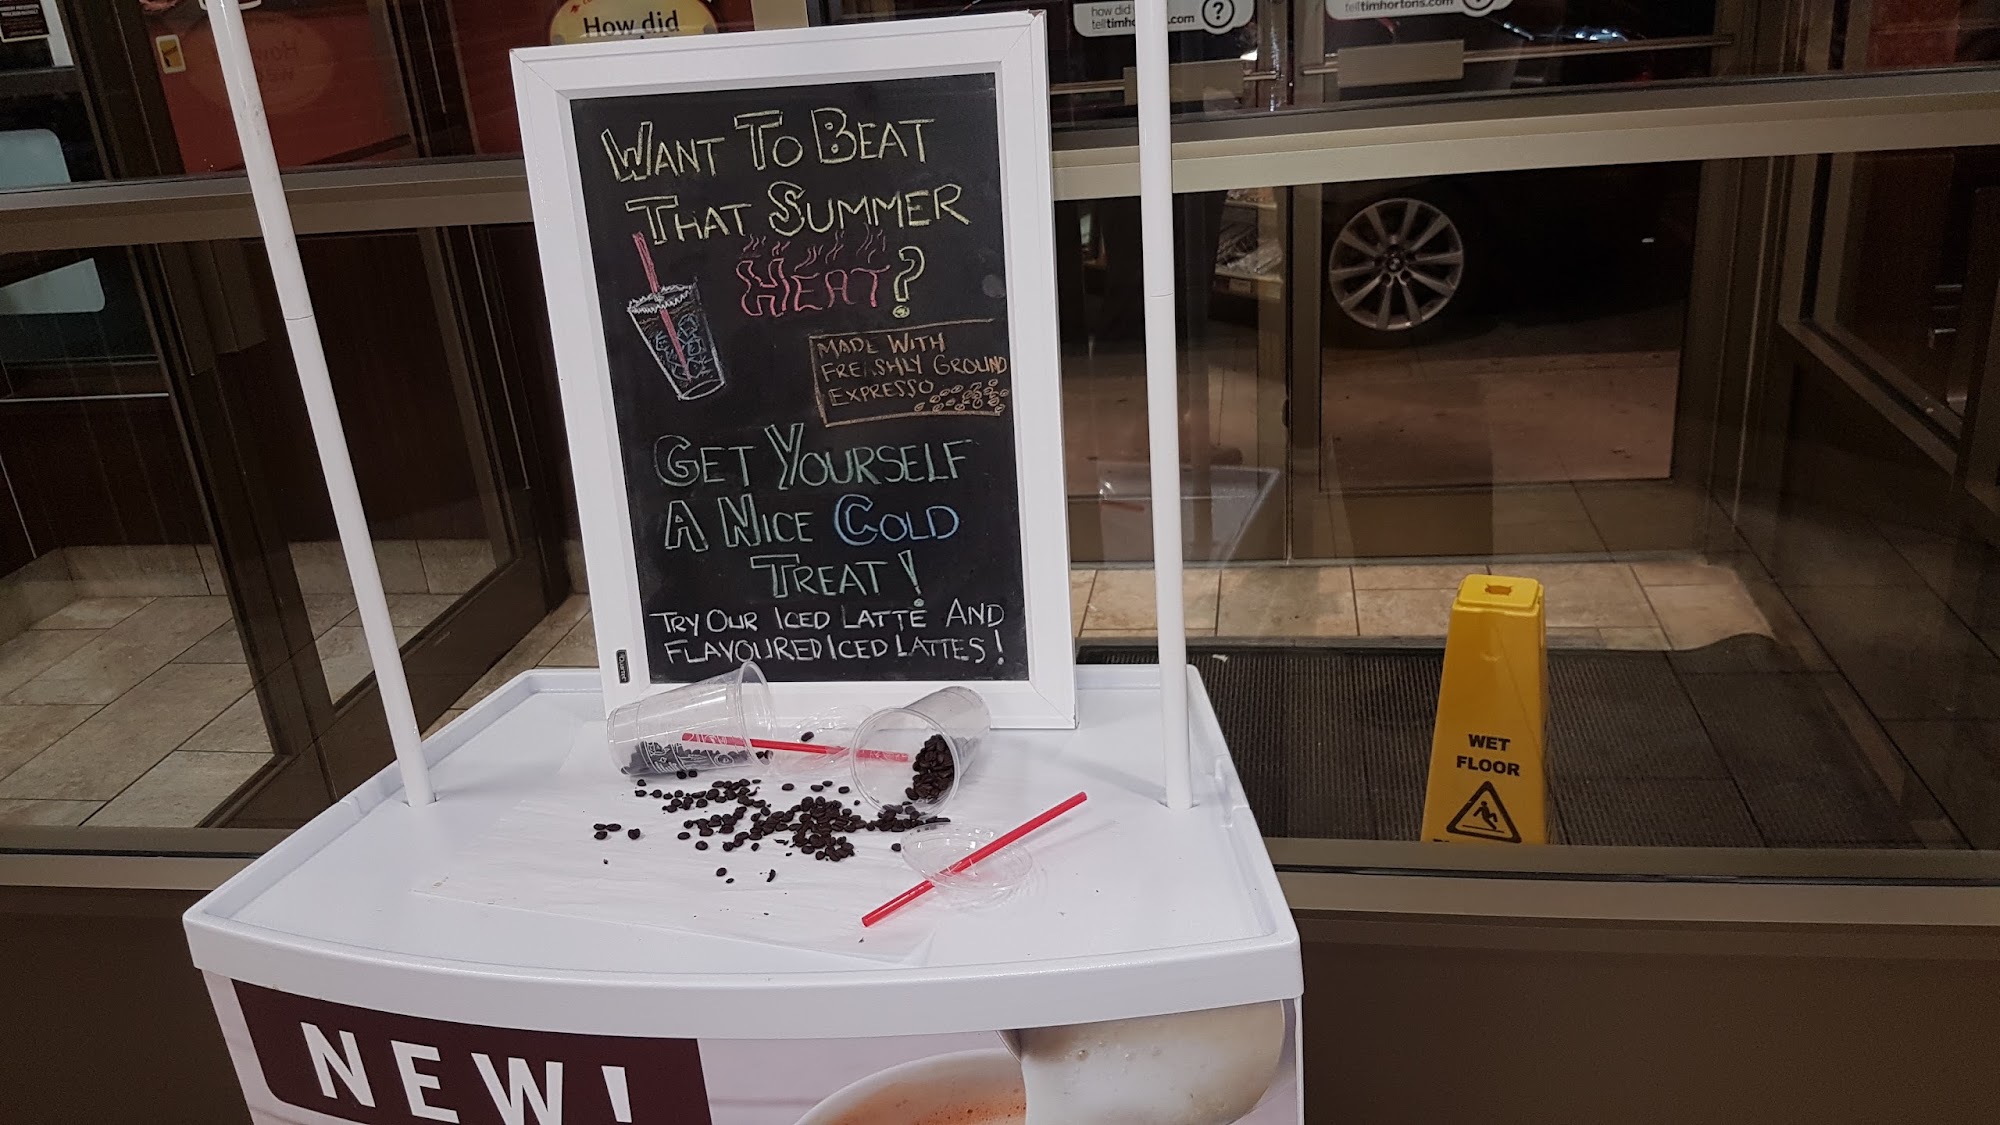 How did
how did
telltimhortons.com
?
telltimhortons.com
?
WANT TO BEAT
THAT SUMMER
HEAT?
MADE WITH
FRESHLY GROUND
EXPRESSO
GET YOURSELF
A NICE COLD
TREAT!
TRY OUR ICED LATTE AND
FLAVOURED ICED LATTES!
Quartet
WET
FLOOR
NEW!